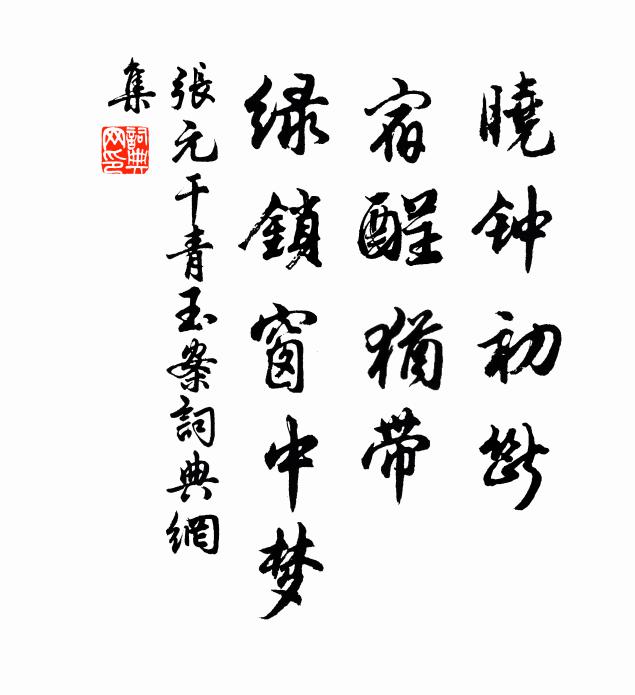 曉钟初斷
宿酲犹带
緑鎖窗中梦
張元干青玉案詞典網
集
詞典网印